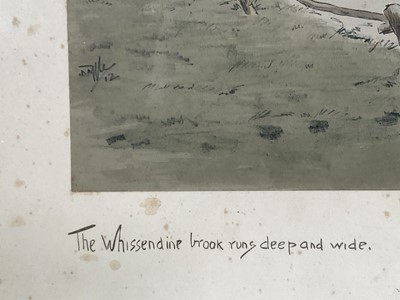 The Whissendine brook runs deep and wide.